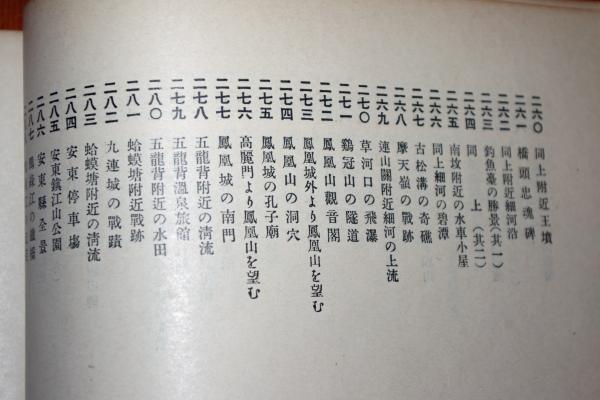 二六〇 同上附近王墳
二六一 橋頭忠魂碑
二六二 同上附近細河沿
二六三 釣魚臺の勝景(其一)
二六四 同 上(其二)
二六五 南坟附近の水車小屋
二六六 同上細河の碧潭
二六七 古松溝の奇礁
二六八 摩天嶺の戰跡
二六九 連山關附近細河の上流
二七〇 草河口の飛瀑
二七一 鷄冠山の隧道
二七二 鳳凰山觀音閣
二七三 鳳凰城外より鳳凰山を望む
二七四 鳳凰山の洞穴
二七五 鳳凰城の孔子廟
二七六 高麗門より鳳凰山を望む
二七七 鳳凰城の南門
二七八 五龍背附近の淸流
二七九 五龍背溫泉旅館
二八〇 五龍背附近の水田
二八一 蛤蟆塘附近戰跡
二八二 九連城の戰蹟
二八三 蛤蟆塘附近の淸流
二八四 安東停車場
二八五 安東鎭江山公園
二八六 安東縣全景
二八七 鴨綠江の鐵橋